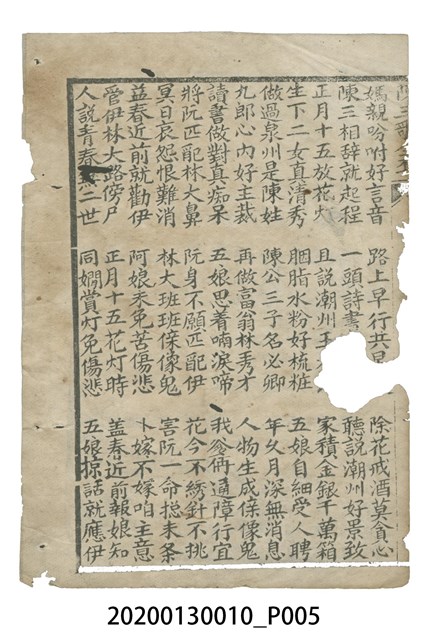 媽親吩咐好言音 路上早行共 除花戒酒莫貪心
陳三相辞就起程 一頭詩書 聽說潮州好景致
正月十五放花灯 且說潮州王 家積金銀千萬箱
生下二女真清秀 胭脂水粉好梳粧 五娘自細受人聘
做過泉州是陳姓 陳公三子名必卿 年久月深無消息
九郎心內好主裁 再做富翁林秀才 人物生成像鬼
讀書做對真痴呆 五娘思着喃淚啼 我爹俩通障行宜
將阮匹配林大鼻 阮身不願匹配伊 花今不綉針不挑
冥日哀怨恨難消 林大班班像鬼 害阮一命捴未条
益春近前就勸伊 阿娘夭免苦傷悲 卜嫁不嫁咱主意
管伊林大路傍尸 正月十五花灯時 益春近前報娘知
人說青春無二世 同嫺賞灯免傷悲 五娘掠話就應伊
20200130010_P005